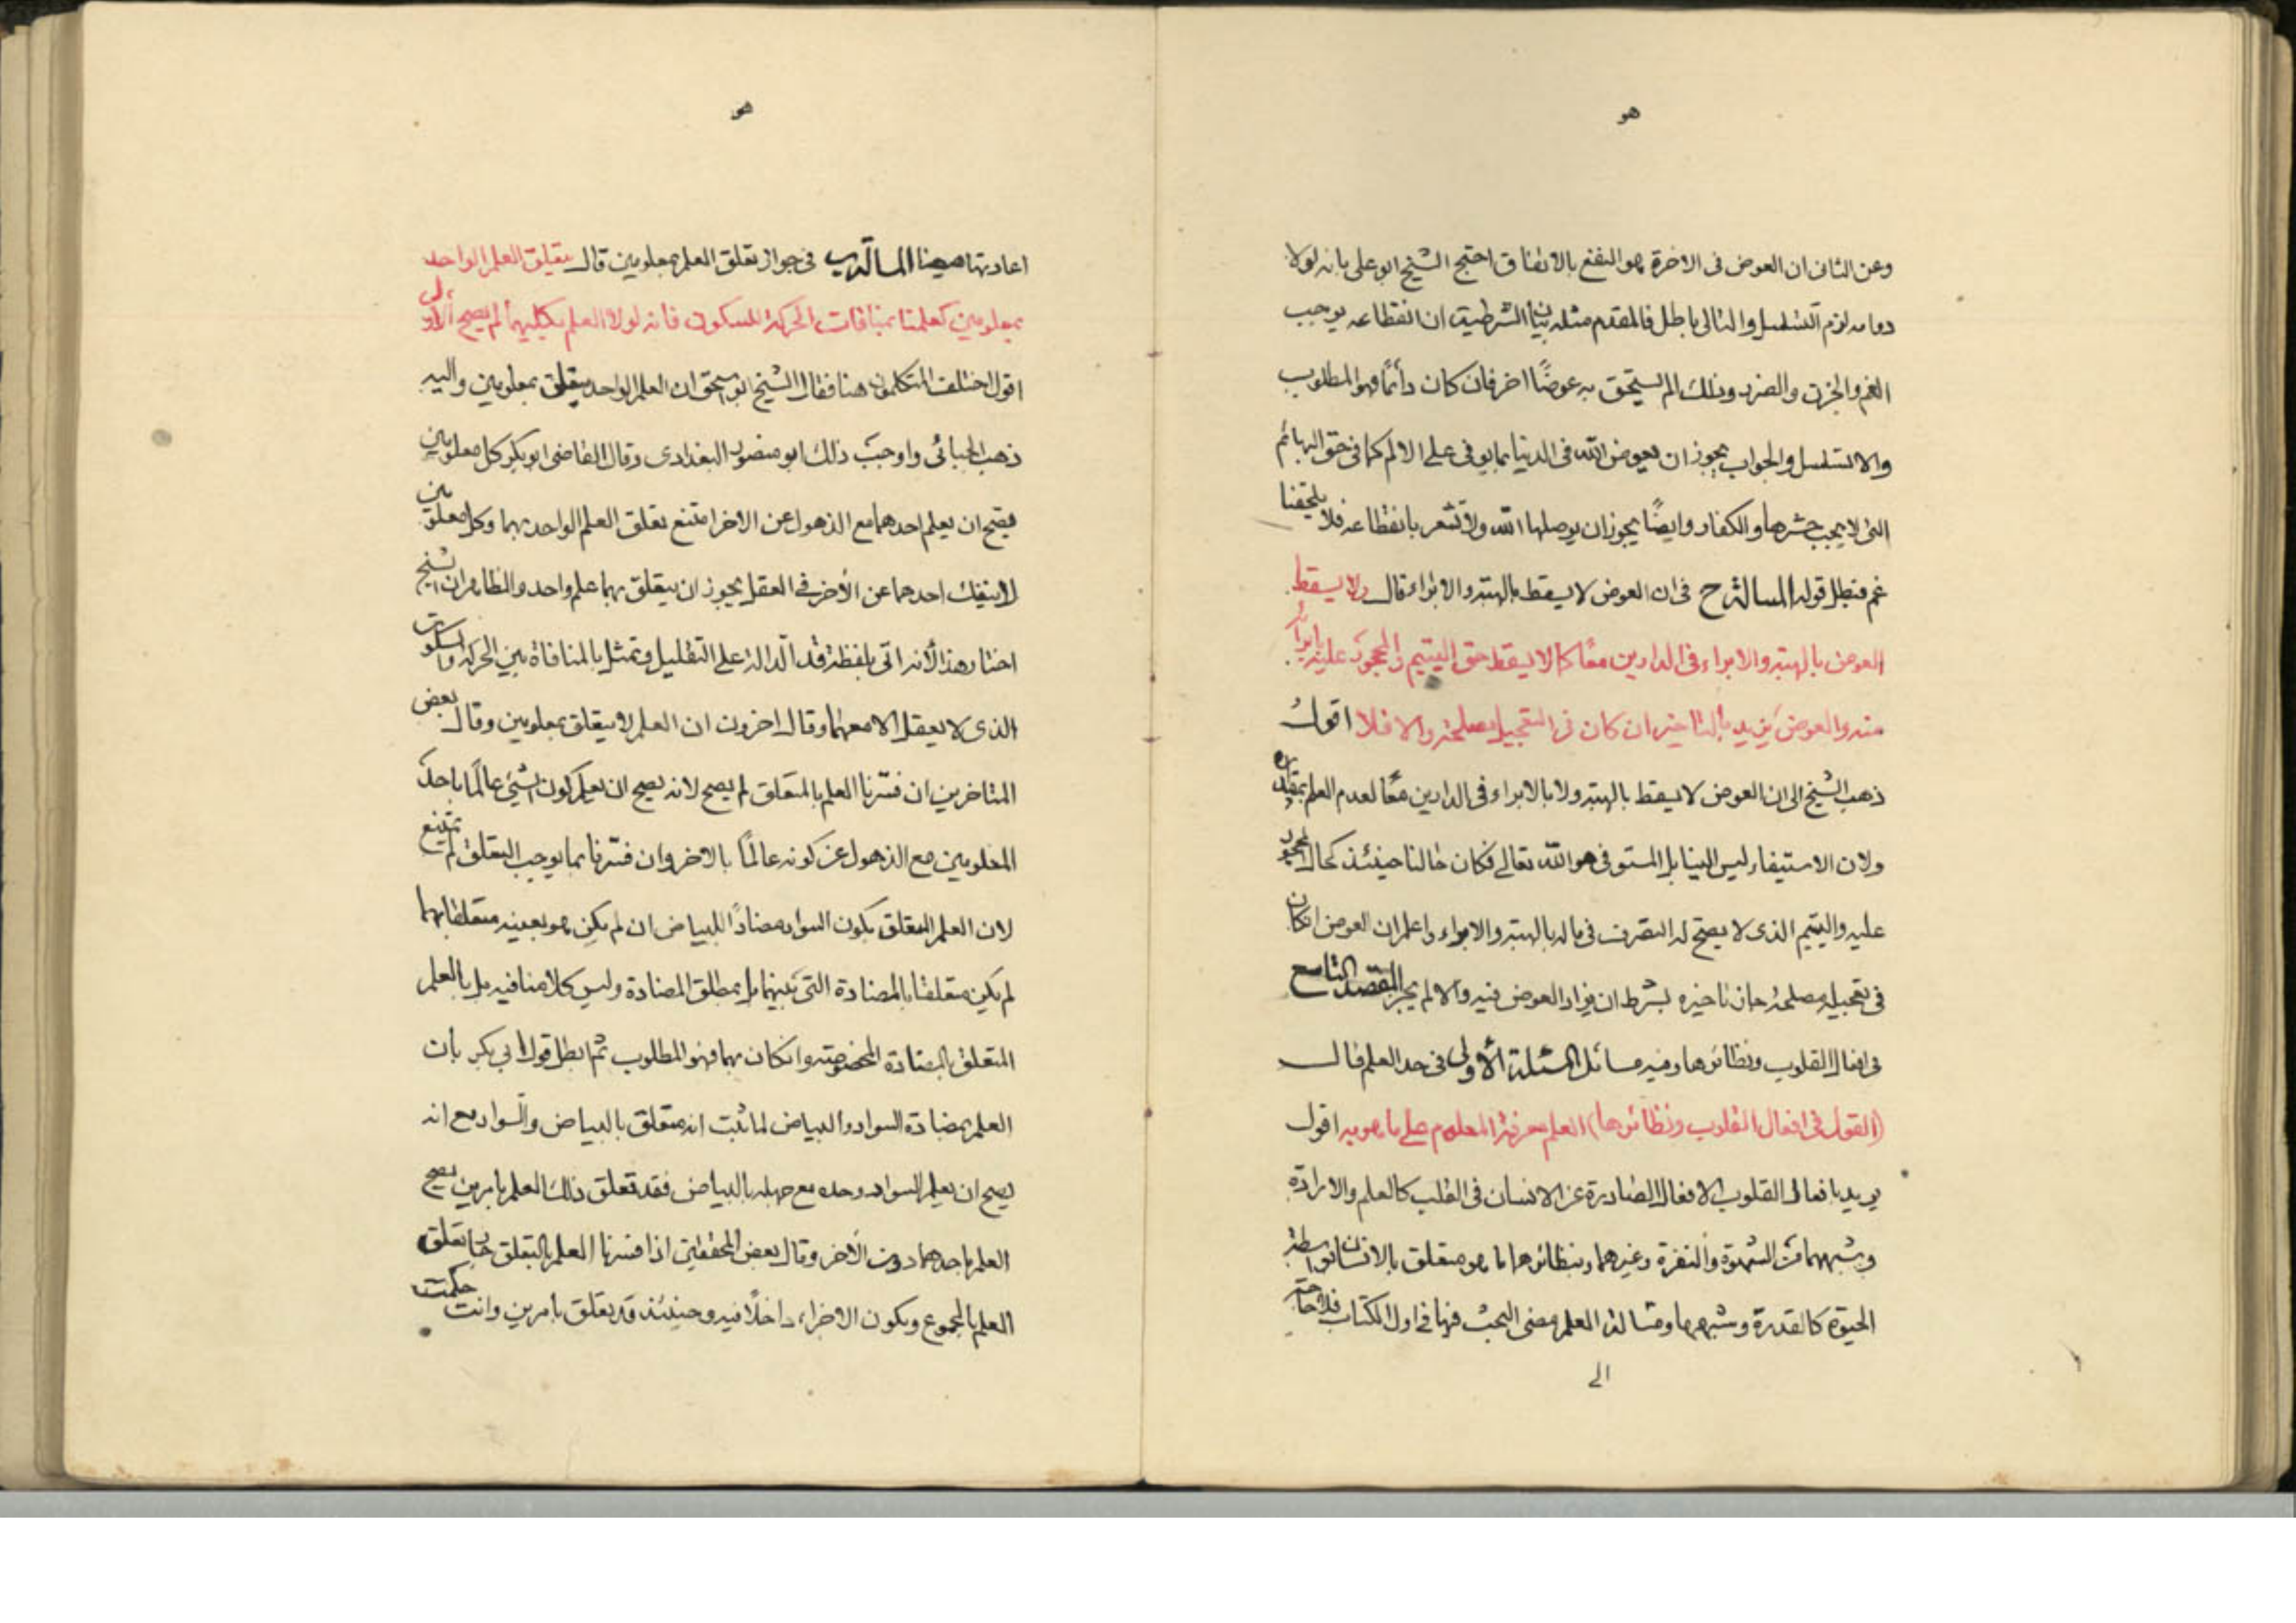 هو
وعن الثانى ان العوض فى الاخرة هو النفع بالاتفاق احتج الشيخ ابو على بانه لولا
دوامه لزم التسلسل والتالى باطل فالمقدم مثله بيان الشرطية ان انقطاعه يوجب
الغم والحزن والضرر وذلك الم يستحق به عوضًا اخر فان كان دائمًا فهو المطلوب
والا تسلسل والجواب يجوز ان يعوض الله فى الدنيا بما يوفى على الالم كما فى حق البهائم
التى لا يجب حشرها والكفار وايضًا يجوز ان يوصلها الله ولا تشعر بانقطاعه فلا يلحقنا
غم فبطل قوله المسالة ح فى ان العوض لا يسقط بالهبة والابراء قال ولا يسقط
العوض بالهبة والابراء فى الدارين معًا كما لا يسقط حق اليتيم والمحجور عليه بابراء
منه والعوض يزيد بالتاخير ان كان فى التعجيل مصلحة والا فلا اقول
ذهب الشيخ الى ان العوض لا يسقط بالهبة ولا بالابراء فى الدارين معًا لعدم العلم بمقداره
ولان الاستيفاء ليس الينا بل المستوفى هو الله تعالى فكان حالنا حينئذ كحال المحجور
عليه واليتيم الذى لا يصح له التصرف فى ماله بالهبة والابراء واعلم ان العوض ان كان
فى تعجيله مصلحة جاز تاخيره بشرط ان يزاد العوض فيه والا لم يجز المقصد التاسع
فى افعال القلوب ونظائرها وفيه مسائل المسئلة الأولى فى حد العلم قال
(القول فى افعال القلوب ونظائرها) العلم معرفة المعلوم على ما هو به اقول
يريد بافعال القلوب الافعال الصادرة عن الانسان فى القلب كالعلم والارادة
وشبههما من الشهوة والنفرة وغيرهما وبنظائرها ما هو متعلق بالانسان بواسطة
الحيوة كالقدرة وشبهها ومسالة العلم مضى البحث فيها فى اول الكتاب فلا حاجة
الى
هو
اعادتها هيهنا المسالة ب فى جواز تعلق العلم بمعلومين قال يتعلق العلم الواحد
بمعلومين كعلمنا بمنافات الحركة للسكون فانه لولا العلم بكليهما لم يصح الاولى
اقول اختلف المتكلمون هنا فقال الشيخ ابو اسحق ان العلم الواحد يتعلق بمعلومين واليه
ذهب الجبائى واوجب ذلك ابو منصور البغدادى وقال القاضى ابو بكر كل معلومين
فصح ان يعلم احدهما مع الذهول عن الاخر امتنع تعلق العلم الواحد بهما وكل معلومين
لا ينفك احدهما عن الأخر فى العقل يجوز ان يتعلق بهما علم واحد والظاهر ان الشيخ
اختار هذا لأنه اتى بلفظة قد الدالة على التقليل وتمثل بالمنافاة بين الحركة والسكون
الذى لا يعقل الا معهما وقال اخرون ان العلم لا يتعلق بمعلومين وقال بعض
المتاخرين ان فسّرنا العلم بالمتعلق لم يصح لانه يصح ان يعلم كون الشيئ عالمًا باحد
المعلومين مع الذهول عن كونه عالمًا بالاخر وان فسّرنا بما يوجب التعلق لم يمتنع
لان العلم المتعلق بكون السواد مضادًا للبياض ان لم يكن هو بعينه متعلقا بهما
لم يكن متعلقا بالمضادة التى بينهما بل بمطلق المضادة وليس كلامنا فيه بل بالعلم
المتعلق بالمضادة المخصوصة وان كان بهما فهو المطلوب ثم ابطل قول ابى بكر بان
العلم بمضادة السواد والبياض لما ثبت انه متعلق بالبياض والسواد مع انه
يصح ان يعلم السواد وحده مع جهله بالبياض فقد تعلق ذلك العلم بامرين يصح
العلم باحدهما دون الأخر وقال بعض المحققين اذا فسرنا العلم بالتعلق جاز تعلق
العلم بالمجموع ويكون الاجزاء داخلًا فيه وحينئذ قد يعلق بامرين وانت حكمت